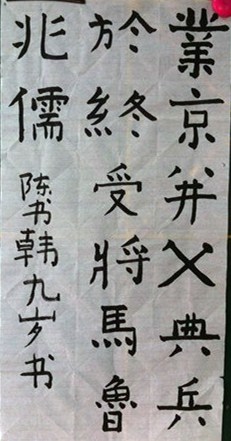 業京并父典兵
於終受將馬魯
兆儒
陈书韩九岁书